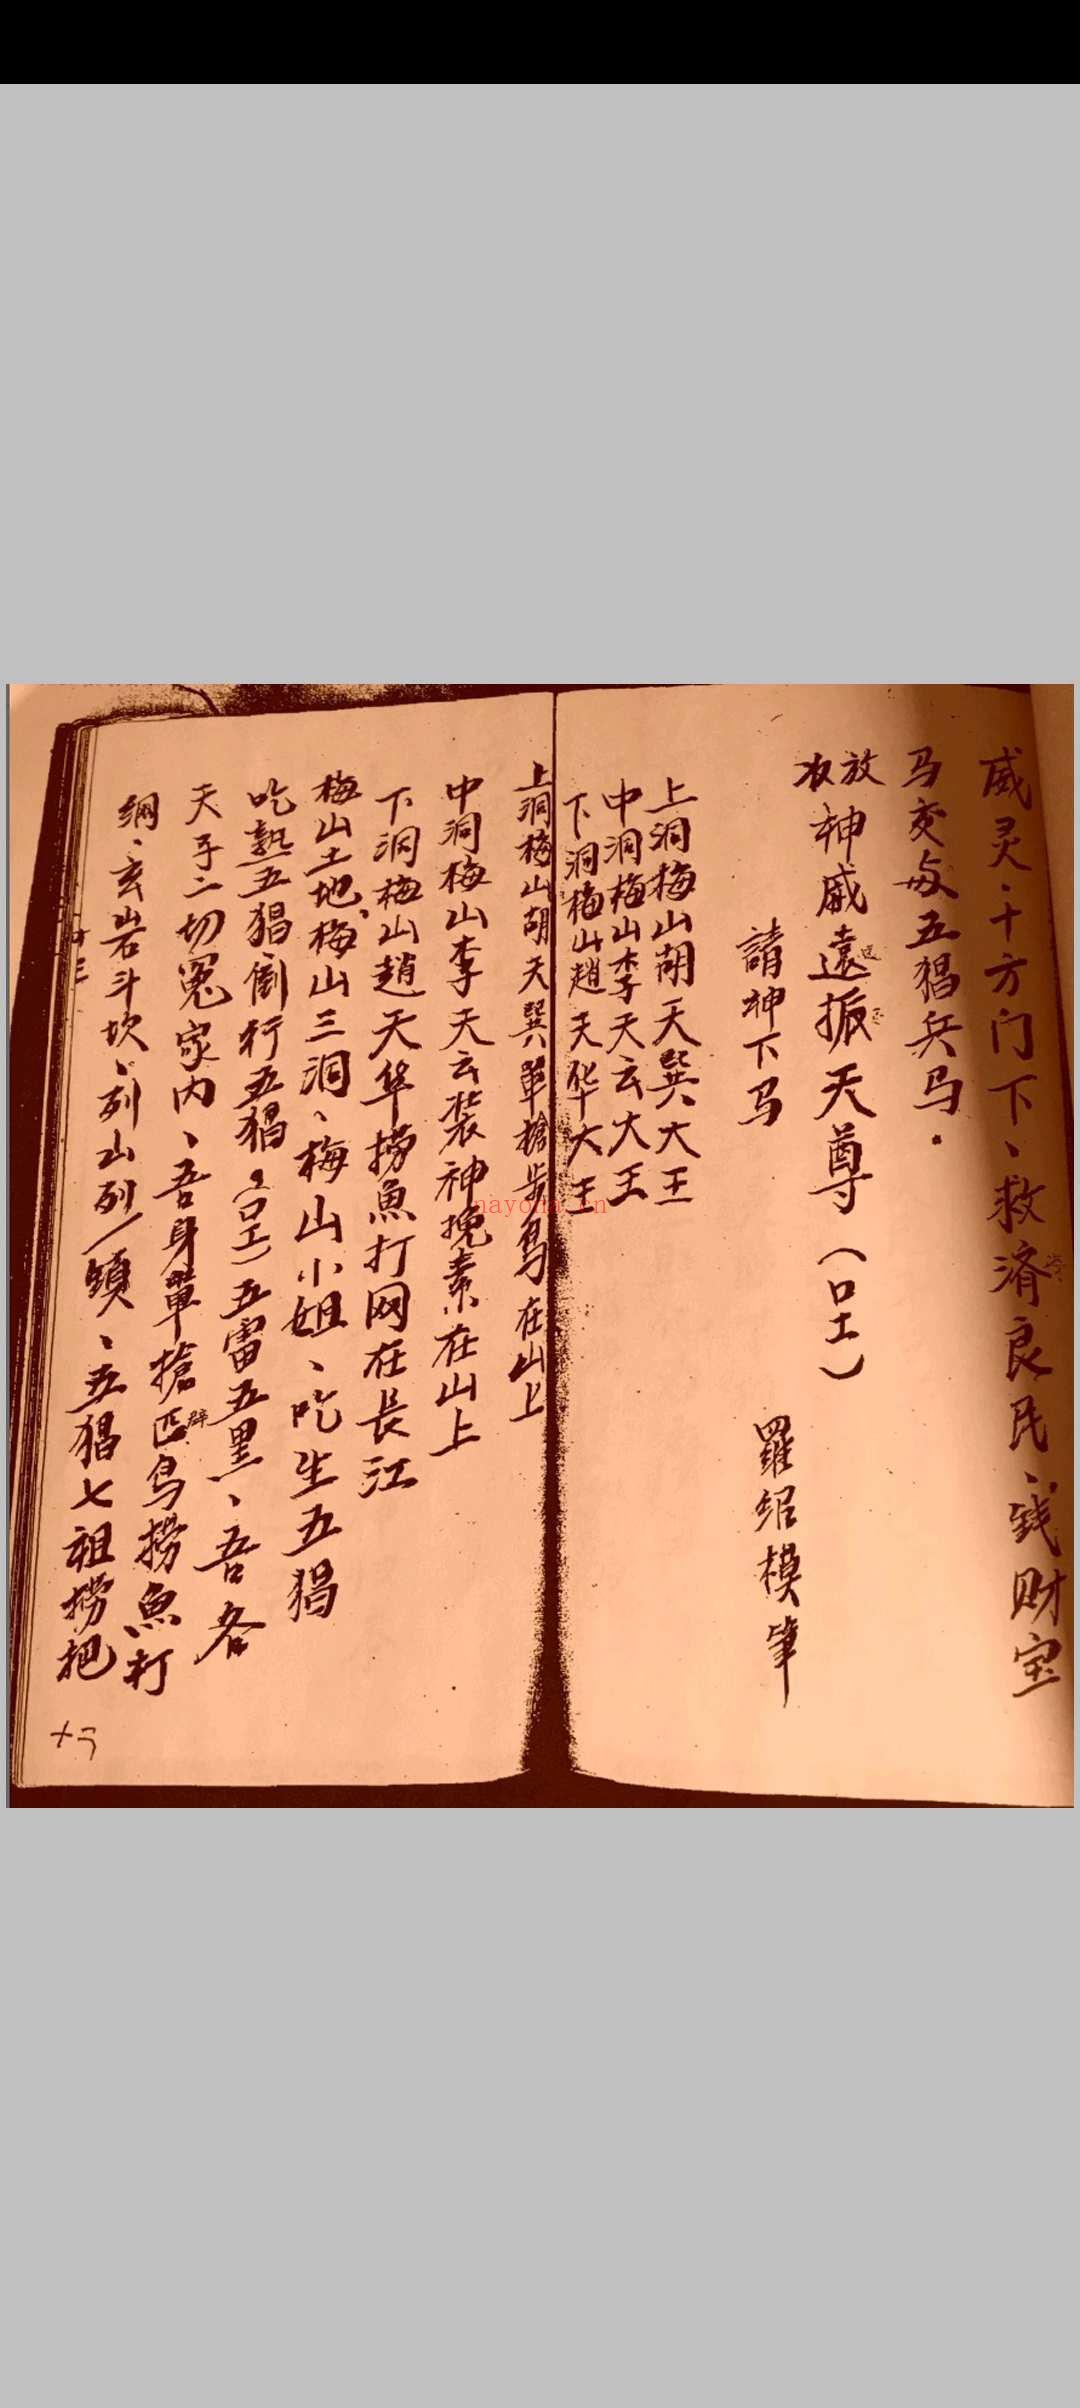 威灵、十方门下、救济良民、钱财宝
马交与五猖兵马.
放
神威遠振天尊(口工)
請神下马
羅绍模筆
上洞梅山胡天巽大王
中洞梅山李天云大王
下洞梅山趙天华大王
上洞梅山胡天巽單槍步鸟在山上
中洞梅山李天云装神挽素在山上
下洞梅山趙天华捞魚打网在長江
梅山土地、梅山三洞、梅山小姐、吃生五猖
吃熟五猖倒行五猖、(口工)五雷五黑、吾各
天子二切冤家内、吾身單搶匹鸟捞魚打
網、玄岩斗坎、列山列嶺、五猖七祖捞把
nayona.cn